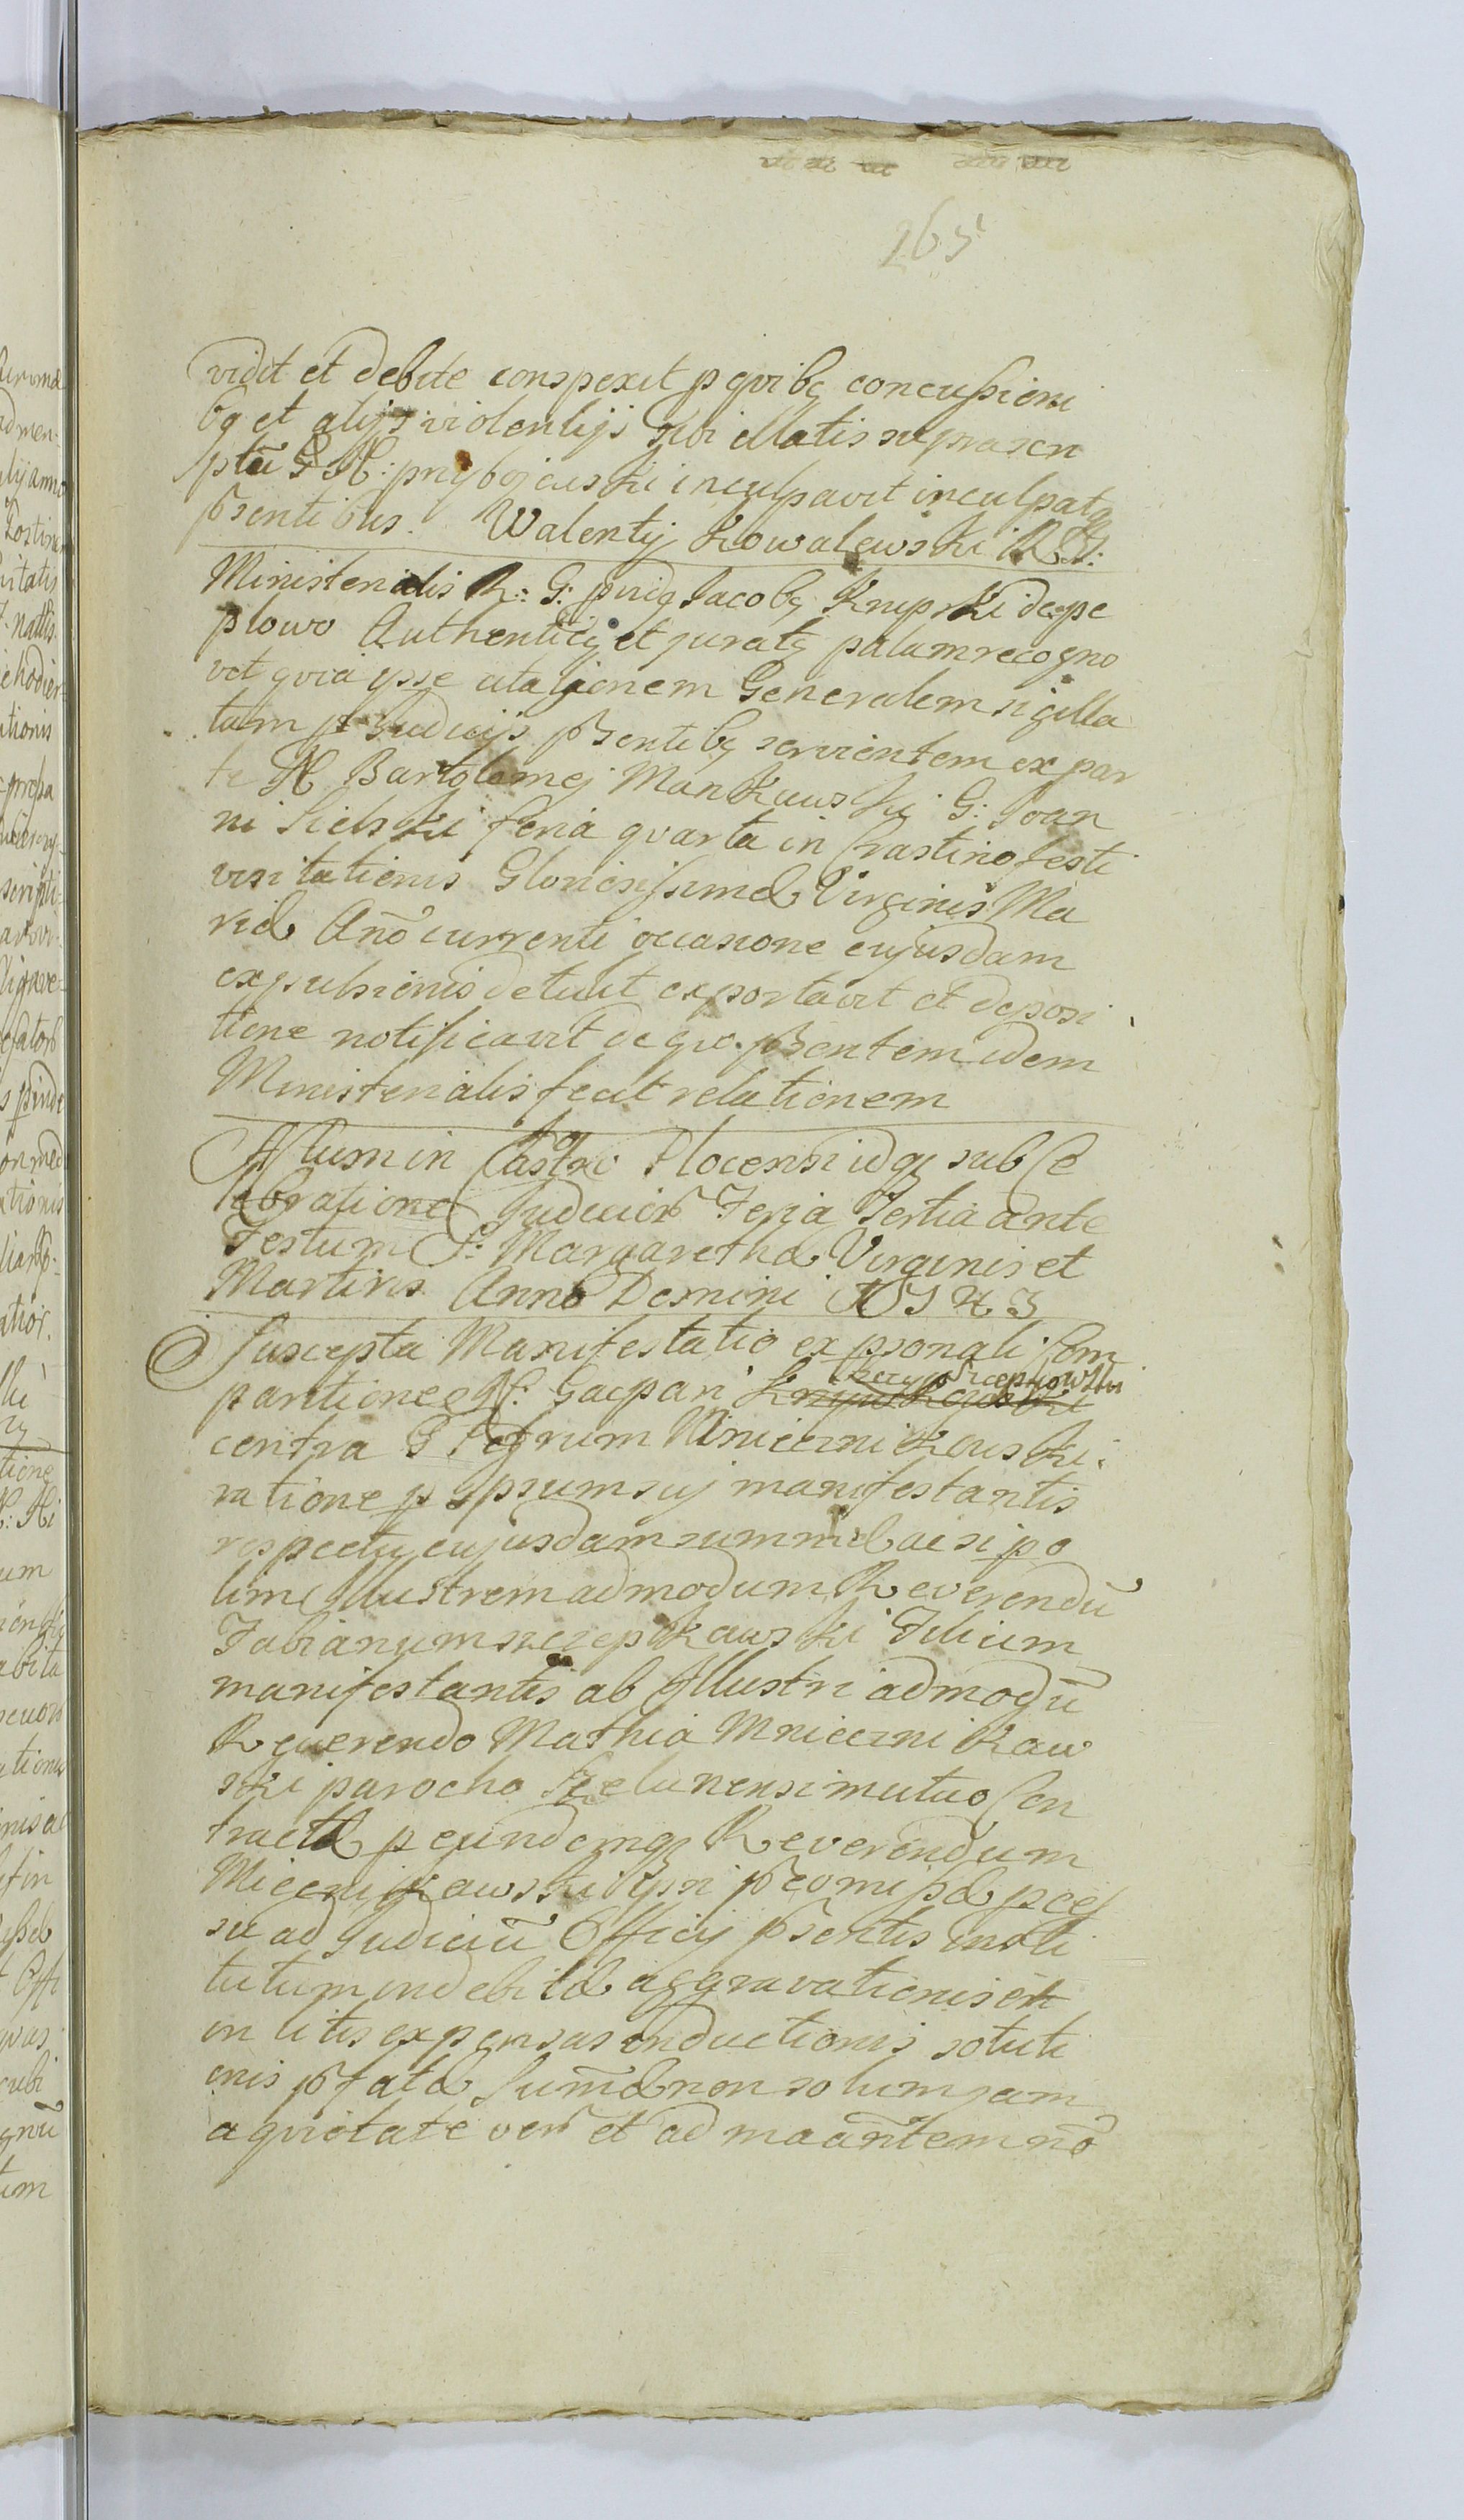 265
vidit et debite conspexit p qvibq concussioni
bq et alijs violentijs sibi illatis supra scri
ptũ G N: przybojewski inculpavit inculpatq
psentibus. Walentij Kowalewski R G:
Ministerialis R: G: pvidq Jacobq Krupski de pe
plowo Authenticq et juratq palam recogno
vit qvia ipse citationem Generalem sigilla
tam pt Judicijs psentibq servientem ex par
te N Bartolomej Mankowski G: Joan
ni Sielski feria qvarta in Crastino festi
visitationis Gloriosissimæ Virginis Ma
riæ Año currenti occasione cujusdam
expulsionis detulit exportavit et deposi
tione notificavit de qvo psentem idem
Ministerialis fecit relationem
Actum in Castro Plocensi idq sub Ce
lebratione Judicior Feria Tertia ante
Festum S: Margarethæ Virginis et
Martiris Anno Domini 1743
Suscepta Manifestatio ex psonali Com
paritione N: Gaspari
contra G Petrum Mniczni Kowski
ratione p ipsum suj manifestantis
respectu cujusdam summæ ac si po
lim Illustrem admodum Reverendũ
Fabianum szczepkowski Filium
manifestantis ab Illustri admodũ
Reverendo Mathia Mniczni Kaw
ski parocho Zielunensi mutuo Con
tractæ p eundemq Reverendum
Miczni Kawski ipsi pmissæ pces
su ad Judiciũ Officij psentis insti
tutum indebitæ aggravationis et
in litis expensas inductionis soluti
onis pfatæ Sumæ non solum jam
aqvietatæ ver et ad maantem no